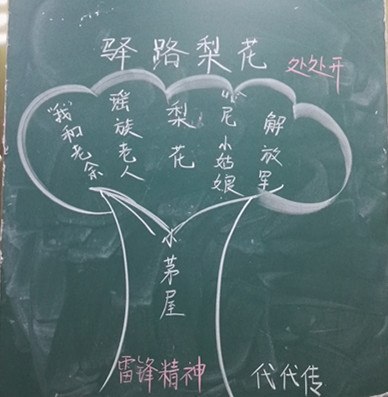 驿路梨花 处处开
"我"和老余
瑶族老人
梨花
哈尼小姑娘
解放军
小茅屋
雷锋精神 代代传